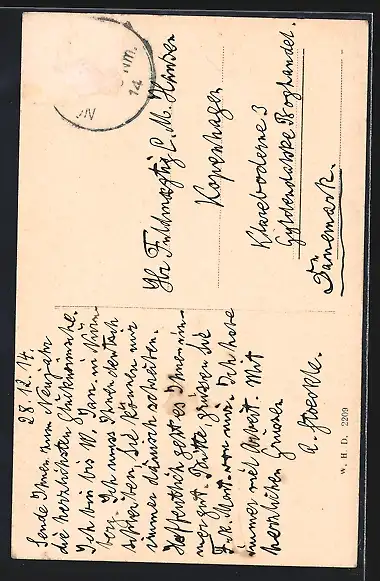 28.12.14.
Sende Ihnen zum Neujahr
die herzlichsten Glückwünsche.
Ich bin bis 10. Jan. in Nürn-
berg. Ich muss Ihnen deutsch
schreiben, Sie können mir
immer dänisch schreiben.
Hoffentlich geht es Ihnen im-
mer gut. Bitte grüssen Sie
Frk. von mir. Ich habe
immer viel Arbeit. Mit
herzlichen Grüssen
Hr. Fuldmægtig L. M. Hansen
Kopenhagen
Klareboderne 3
Gyldendalske Boghandel.
Dänemark.
W. H. D. 2209